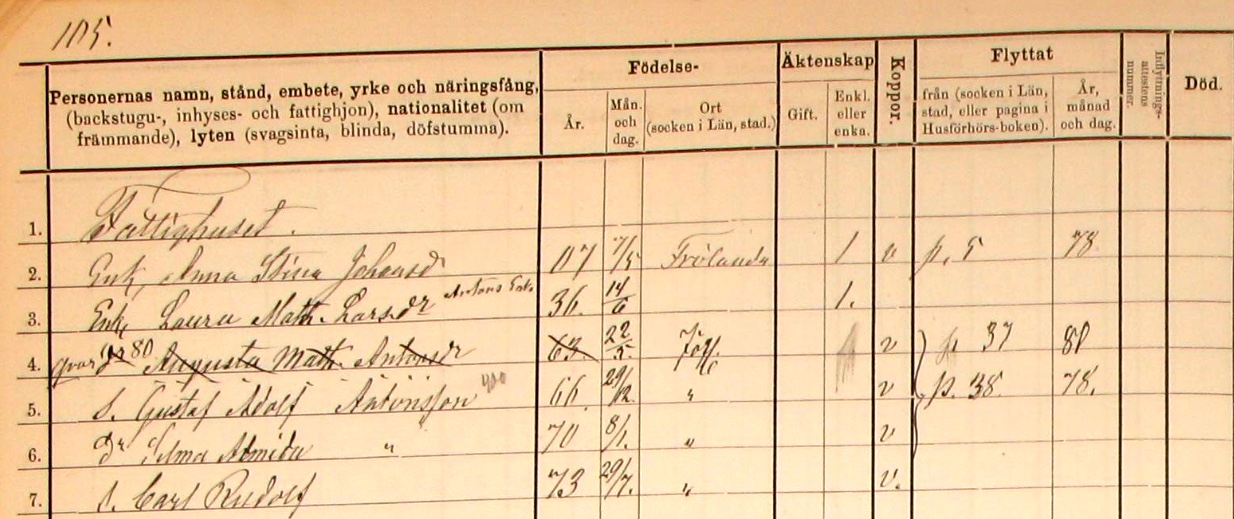 105.
Personernas namn, stånd, embete, yrke och näringsfång, (backstugu-, inhyses- och fattighjon), nationalitet (om främmande), lyten (svagsinta, blinda, döfstumma).
Födelse-
År.
Mån. och dag.
Ort (socken i Län, stad.)
Äktenskap
Gift.
Enkl. eller enka.
Koppor.
Flyttat
från (socken i Län, stad, eller pagina i Husförhörs-boken).
År, månad och dag.
Inflyttnings-attestens nummer.
Död.
1. Fattighuset.
2. Enk. Anna Stina Johansd 07 7/5 Frölanda 1 v p. 5 78
3. Enk. Laura Math. Larsdr Antons Enk. 36. 14/6 1.
4. qvar dr 80 Augusta Math. Antonsdr 63 22/5. v 37 80
5. s. Gustaf Adolf Antonsson 66 29/12. " v p. 38. 78.
6. Dr Selma Almida " 70 8/1. " v
7. s. Carl Rudolf 73 29/7. " v.